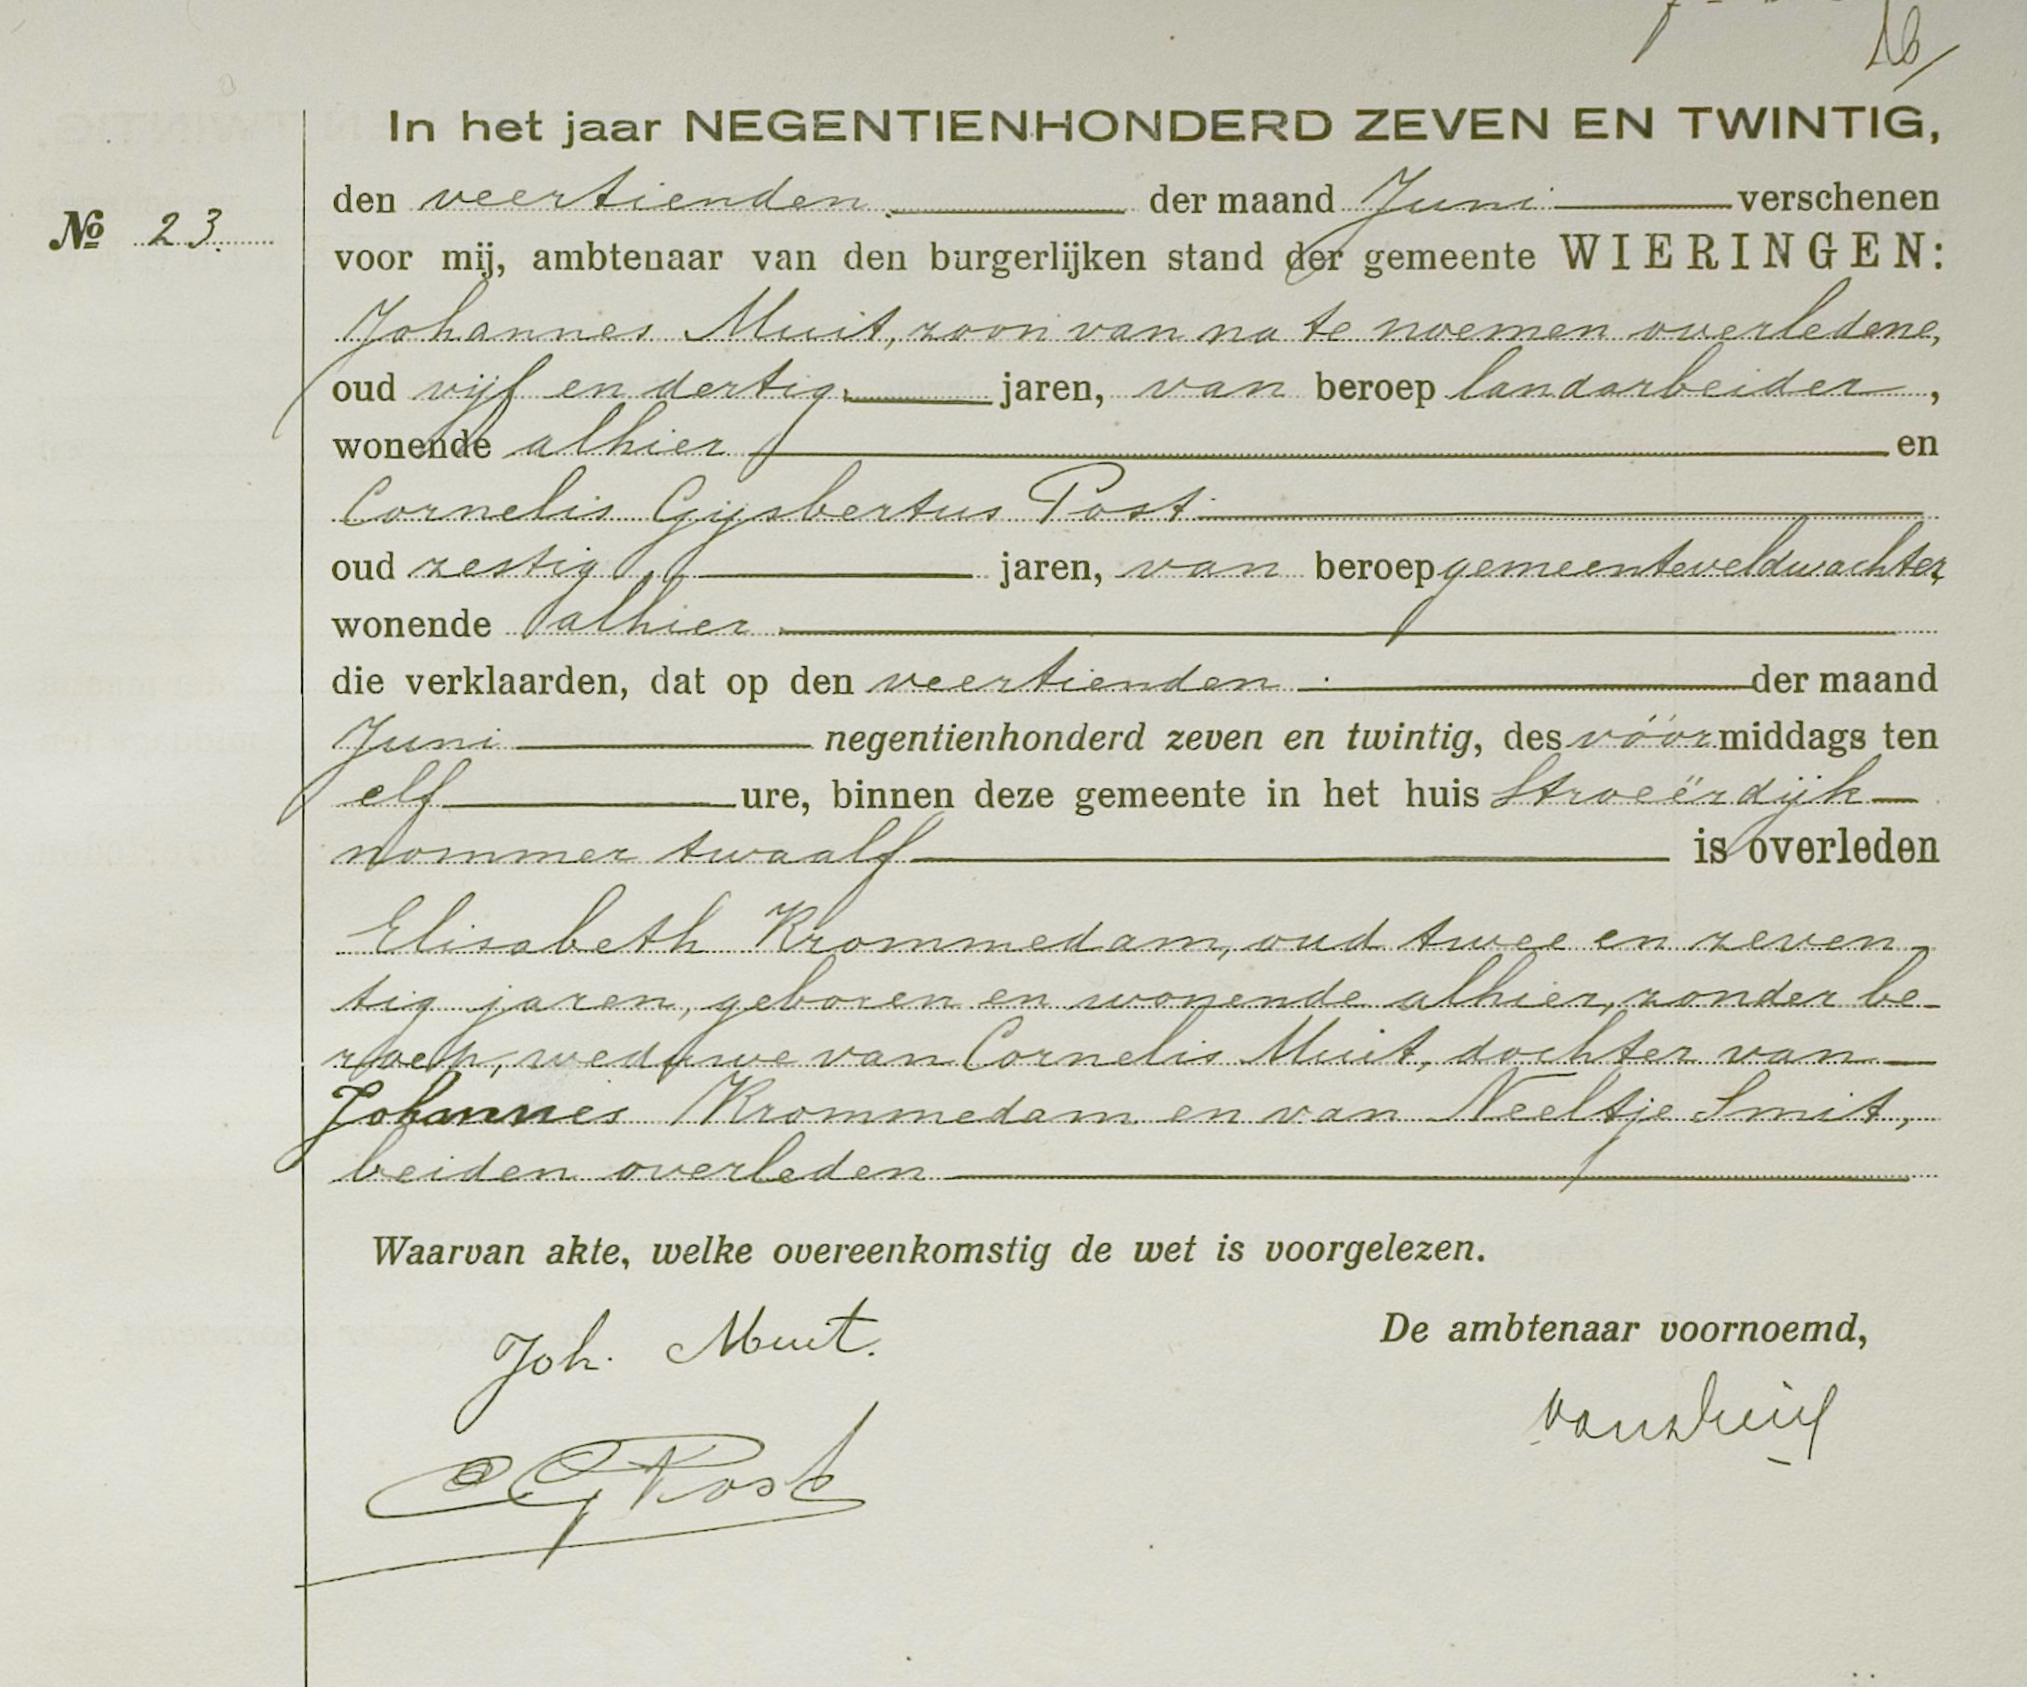 16/
In het jaar NEGENTIENHONDERD ZEVEN EN TWINTIG,
den veertienden. der maand Juni verschenen
No 23.
voor mij, ambtenaar van den burgerlijken stand der gemeente WIERINGEN:
Johannes Muit, zoon van na te noemen overledene,
oud vijf en dertig jaren, van beroep landarbeider,
wonende alhier en
Cornelis Gijsbertus Post
oud zestig jaren, van beroep gemeenteveldwachter,
wonende alhier
die verklaarden, dat op den veertienden der maand
Juni negentienhonderd zeven en twintig, des vóórmiddags ten
elf ure, binnen deze gemeente in het huis Stroeërdijk
nommer twaalf is overleden
Elisabeth Krommedam, oud twee en zeven-
tig jaren, geboren en wonende alhier, zonder be-
roep, weduwe van Cornelis Muit, dochter van
Johannes Krommedam en van Neeltje Smit,
beiden overleden
Waarvan akte, welke overeenkomstig de wet is voorgelezen.
Joh. Muit.
De ambtenaar voornoemd,
CG Post